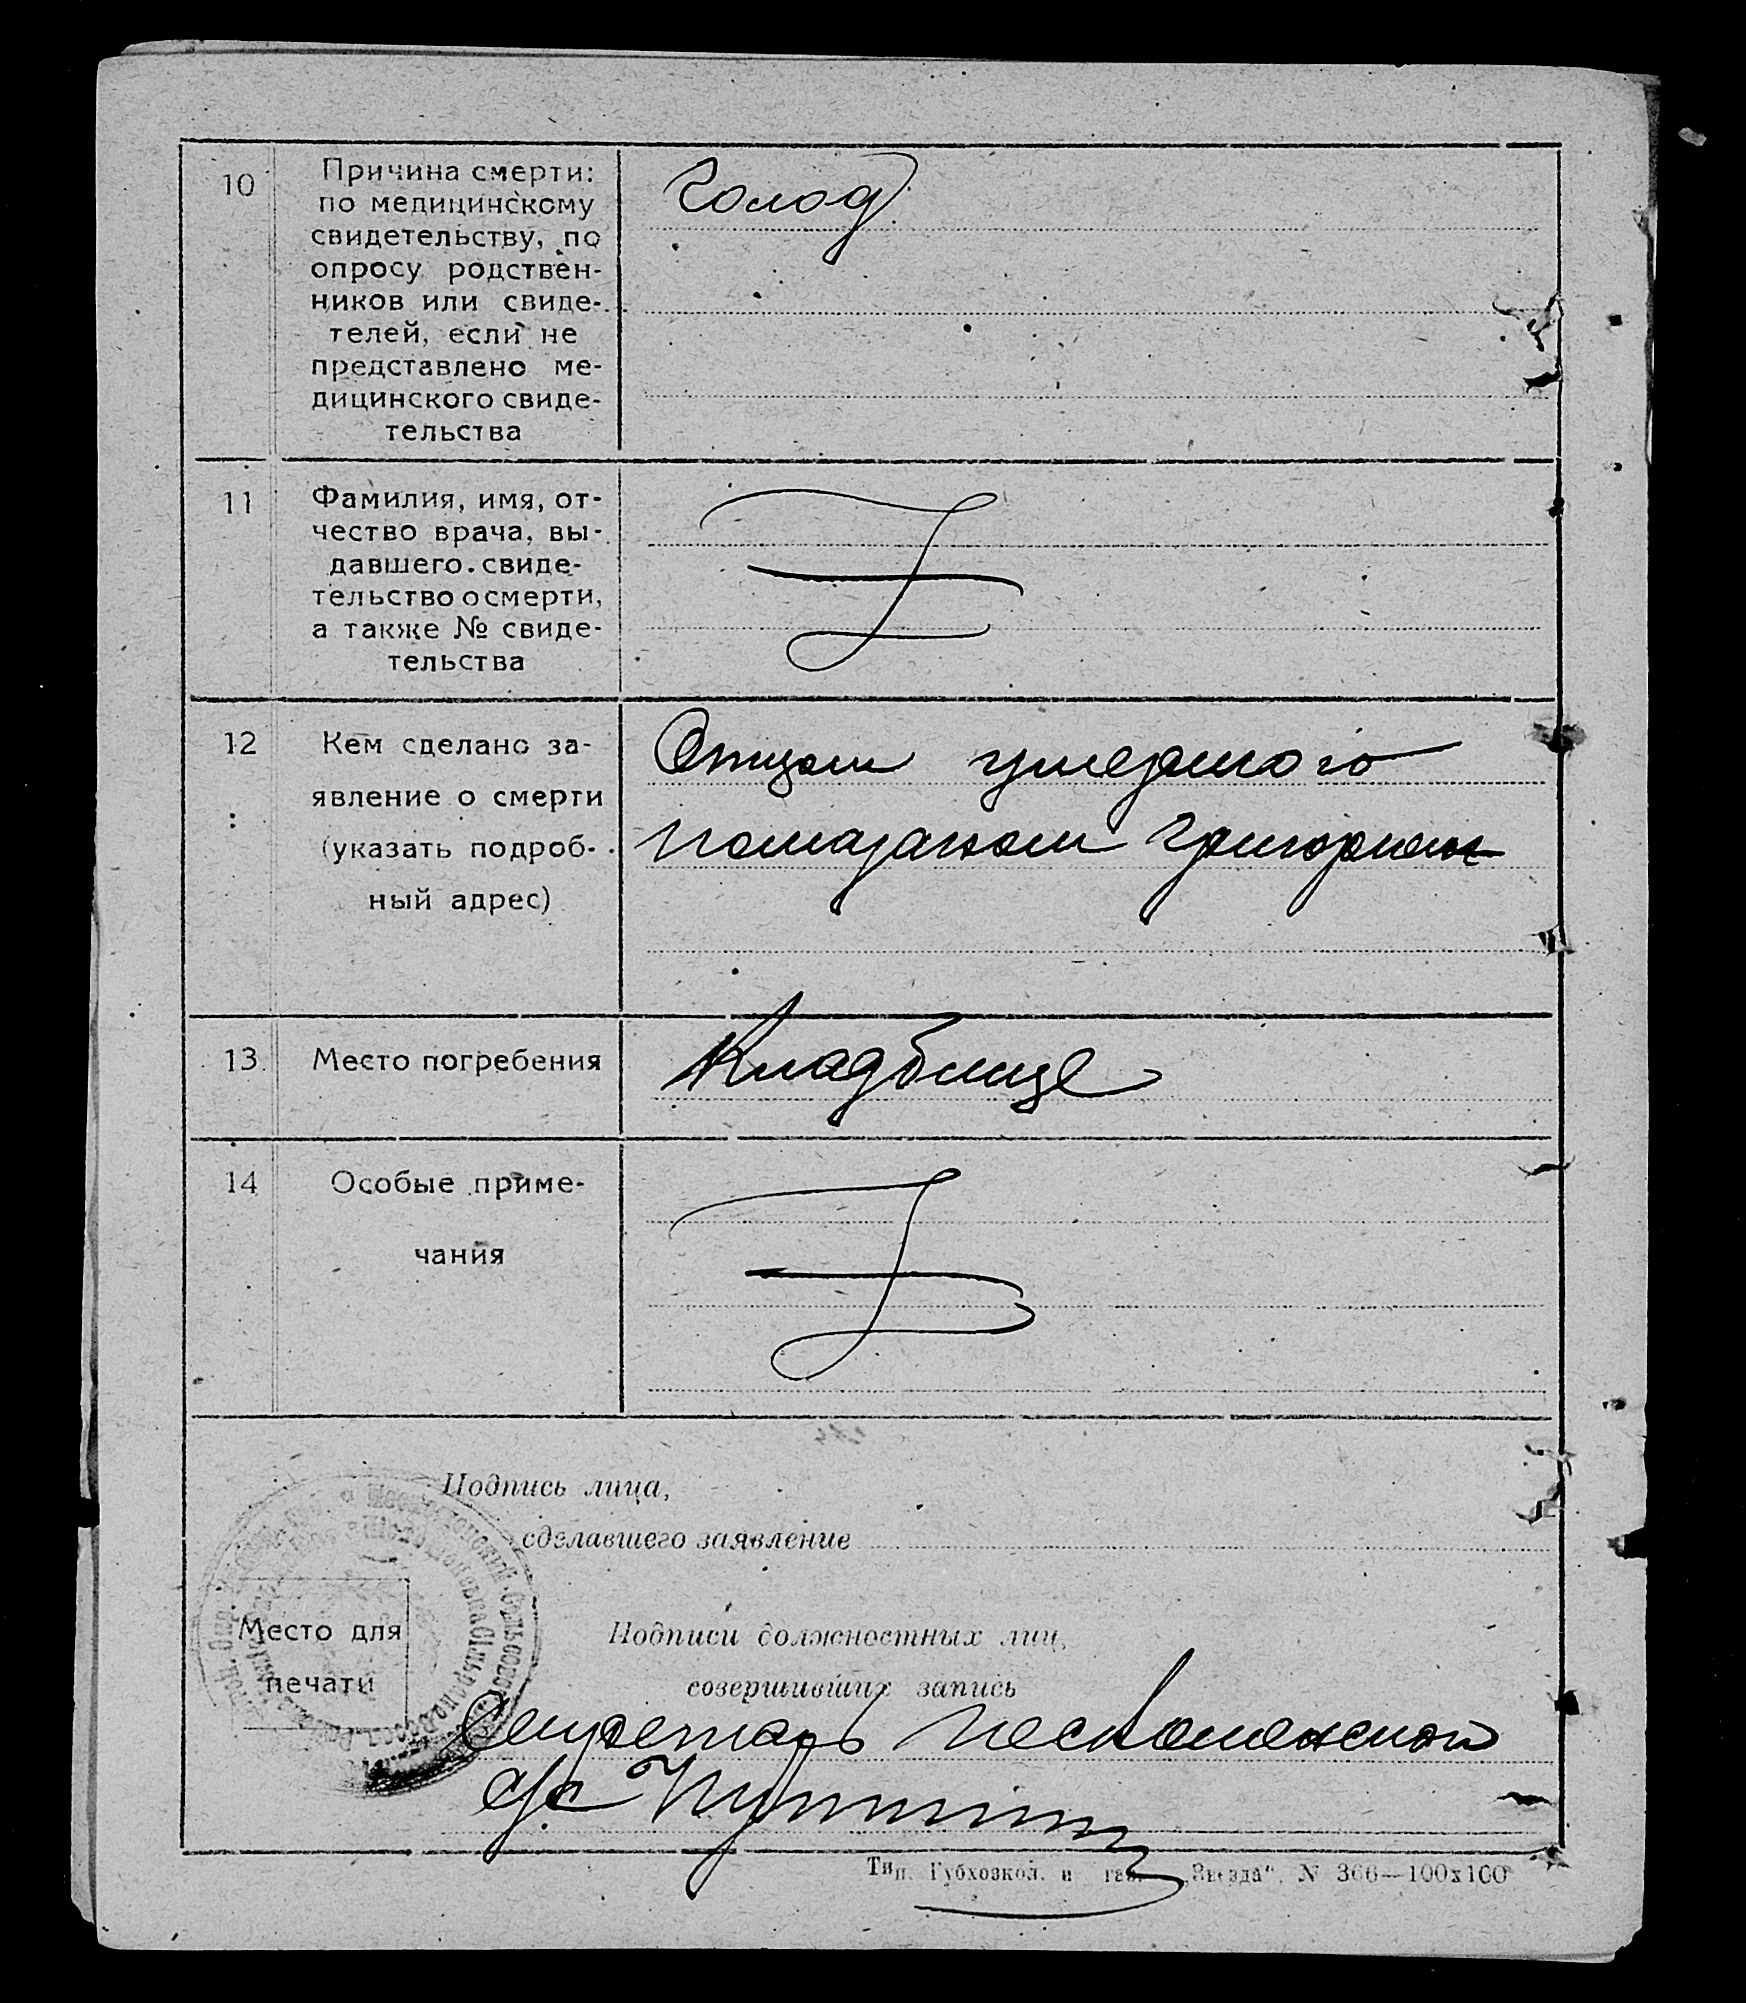 10
Причина смерти:
по медицинскому
свидетельству, по
опросу родствен-
ников или свиде-
телей, если не
представлено ме-
дицинского свиде-
тельства
Голод
11
Фамилия, имя, от-
чество врача, вы-
давшего свиде-
тельство о смерти,
а также № свиде-
тельства
12
Кем сделано за-
явление о смерти
(указать подроб-
ный адрес)
Отцом умершого
Григорием
13
Место погребения
Кладбище
14
Особые приме-
чания
Подпись лица,
сделавшего заявление
Место для
печати
Подписи должностных лиц,
совершивших запись
Секретарь
с/с
Тип. Губхозкол. и газ. „Звезда“. N 366—100х100